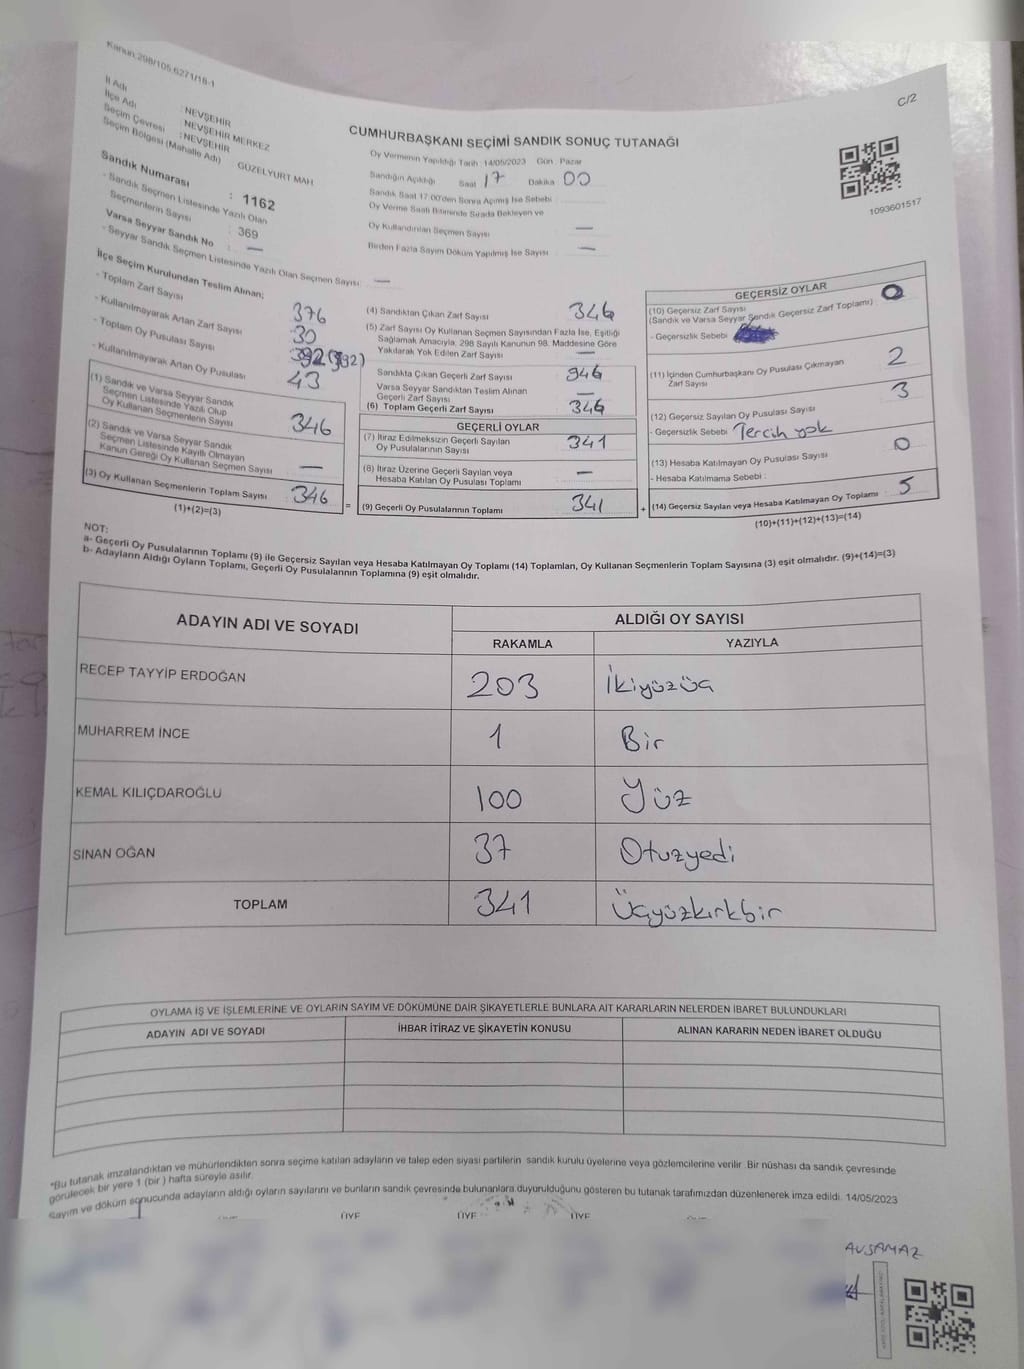 Kanun:298/105-6271/18-1
C/2
İl Adı : NEVŞEHİR
İlçe Adı : NEVŞEHİR MERKEZ
Seçim Çevresi : NEVŞEHİR
Seçim Bölgesi (Mahalle Adı) GÜZELYURT MAH
Sandık Numarası : 1162
- Sandık Seçmen Listesinde Yazılı Olan
Seçmenlerin Sayısı : 369
Varsa Seyyar Sandık No : —
- Seyyar Sandık Seçmen Listesinde Yazılı Olan Seçmen Sayısı : —
CUMHURBAŞKANI SEÇİMİ SANDIK SONUÇ TUTANAĞI
Oy Vermenin Yapıldığı Tarih : 14/05/2023 Gün : Pazar
Sandığın Açıldığı Saat 17 Dakika 00
Sandık Saat 17:00'den Sonra Açılmış İse Sebebi :
Oy Verme Saati Bitiminde Sırada Bekleyen ve
Oy Kullandırılan Seçmen Sayısı —
Birden Fazla Sayım Döküm Yapılmış İse Sayısı —
1093601517
İlçe Seçim Kurulundan Teslim Alınan;
- Toplam Zarf Sayısı 376
- Kullanılmayarak Artan Zarf Sayısı 30
- Toplam Oy Pusulası Sayısı 392 (392)
- Kullanılmayarak Artan Oy Pusulası 43
(1) Sandık ve Varsa Seyyar Sandık
Seçmen Listesinde Yazılı Olup
Oy Kullanan Seçmenlerin Sayısı 346
(2) Sandık ve Varsa Seyyar Sandık
Seçmen Listesinde Kayıtlı Olmayan
Kanun Gereği Oy Kullanan Seçmen Sayısı —
(3) Oy Kullanan Seçmenlerin Toplam Sayısı 346
(1)+(2)=(3)
(4) Sandıktan Çıkan Zarf Sayısı 346
(5) Zarf Sayısı Oy Kullanan Seçmen Sayısından Fazla İse, Eşitliği
Sağlamak Amacıyla, 298 Sayılı Kanunun 98. Maddesine Göre
Yakılarak Yok Edilen Zarf Sayısı —
Sandıkta Çıkan Geçerli Zarf Sayısı 346
Varsa Seyyar Sandıktan Teslim Alınan
Geçerli Zarf Sayısı —
(6) Toplam Geçerli Zarf Sayısı 346
GEÇERLİ OYLAR
(7) İtiraz Edilmeksizin Geçerli Sayılan
Oy Pusulalarının Sayısı 341
(8) İtiraz Üzerine Geçerli Sayılan veya
Hesaba Katılan Oy Pusulası Toplamı —
= (9) Geçerli Oy Pusulalarının Toplamı 341
GEÇERSİZ OYLAR
(10) Geçersiz Zarf Sayısı
(Sandık ve Varsa Seyyar Sandık Geçersiz Zarf Toplamı) : 0
- Geçersizlik Sebebi
(11) İçinden Cumhurbaşkanı Oy Pusulası Çıkmayan
Zarf Sayısı 2
(12) Geçersiz Sayılan Oy Pusulası Sayısı 3
- Geçersizlik Sebebi Tercih yok
(13) Hesaba Katılmayan Oy Pusulası Sayısı 0
- Hesaba Katılmama Sebebi :
+ (14) Geçersiz Sayılan veya Hesaba Katılmayan Oy Toplamı 5
(10)+(11)+(12)+(13)=(14)
NOT:
a- Geçerli Oy Pusulalarının Toplamı (9) ile Geçersiz Sayılan veya Hesaba Katılmayan Oy Toplamı (14) Toplamları, Oy Kullanan Seçmenlerin Toplam Sayısına (3) eşit olmalıdır. (9)+(14)=(3)
b- Adayların Aldığı Oyların Toplamı, Geçerli Oy Pusulalarının Toplamına (9) eşit olmalıdır.
ADAYIN ADI VE SOYADI ALDIĞI OY SAYISI
RAKAMLA YAZIYLA
RECEP TAYYİP ERDOĞAN 203 İkiyüzüç
MUHARREM İNCE 1 Bir
KEMAL KILIÇDAROĞLU 100 Yüz
SİNAN OĞAN 37 Otuzyedi
TOPLAM 341 Üçyüzkırkbir
OYLAMA İŞ VE İŞLEMLERİNE VE OYLARIN SAYIM VE DÖKÜMÜNE DAİR ŞİKAYETLERLE BUNLARA AİT KARARLARIN NELERDEN İBARET BULUNDUKLARI
ADAYIN ADI VE SOYADI İHBAR İTİRAZ VE ŞİKAYETİN KONUSU ALINAN KARARIN NEDEN İBARET OLDUĞU
*Bu tutanak imzalandıktan ve mühürlendikten sonra seçime katılan adayların ve talep eden siyasi partilerin sandık kurulu üyelerine veya gözlemcilerine verilir. Bir nüshası da sandık çevresinde
görülecek bir yere 1 (bir) hafta süreyle asılır.
Sayım ve döküm sonucunda adayların aldığı oyların sayılarını ve bunların sandık çevresinde bulunanlara duyurulduğunu gösteren bu tutanak tarafımızdan düzenlenerek imza edildi. 14/05/2023
ÜYE ÜYE ÜYE ÜYE